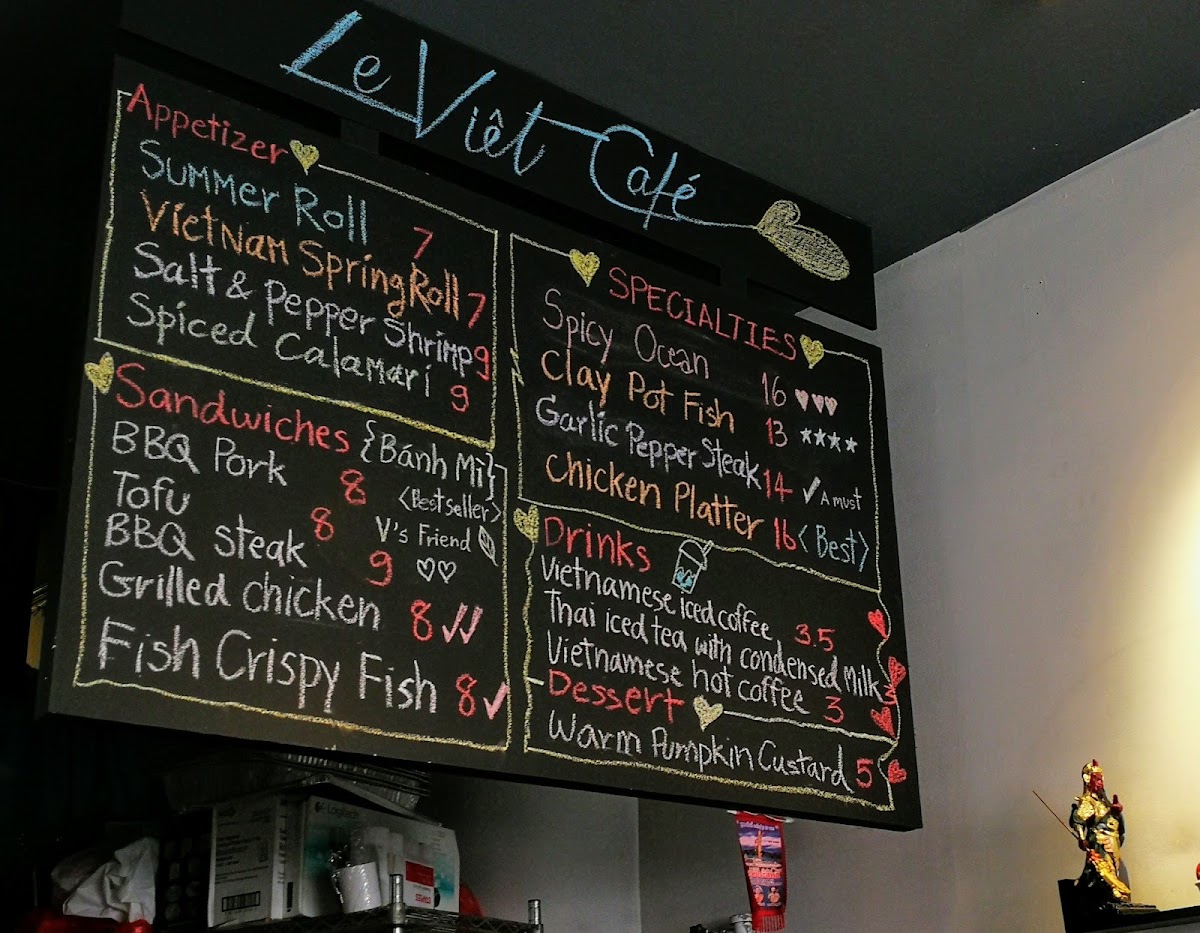 Le Việt Café
Appetizer
Summer Roll 7
VietNam Spring Roll 7
Salt & Pepper Shrimp 9
Spiced Calamari 9
Sandwiches {Bánh Mì}
BBQ Pork 8 <Best seller>
Tofu 8 V's Friend
BBQ steak 9
Grilled chicken 8
Fish Crispy Fish 8
SPECIALTIES
Spicy Ocean 16
Clay Pot Fish 13
Garlic Pepper Steak 14 A must
Chicken Platter 16 <Best>
Drinks
Vietnamese iced coffee 3.5
Thai iced tea with condensed Milk 3
Vietnamese hot coffee 3
Dessert
Warm Pumpkin Custard 5
Logitech